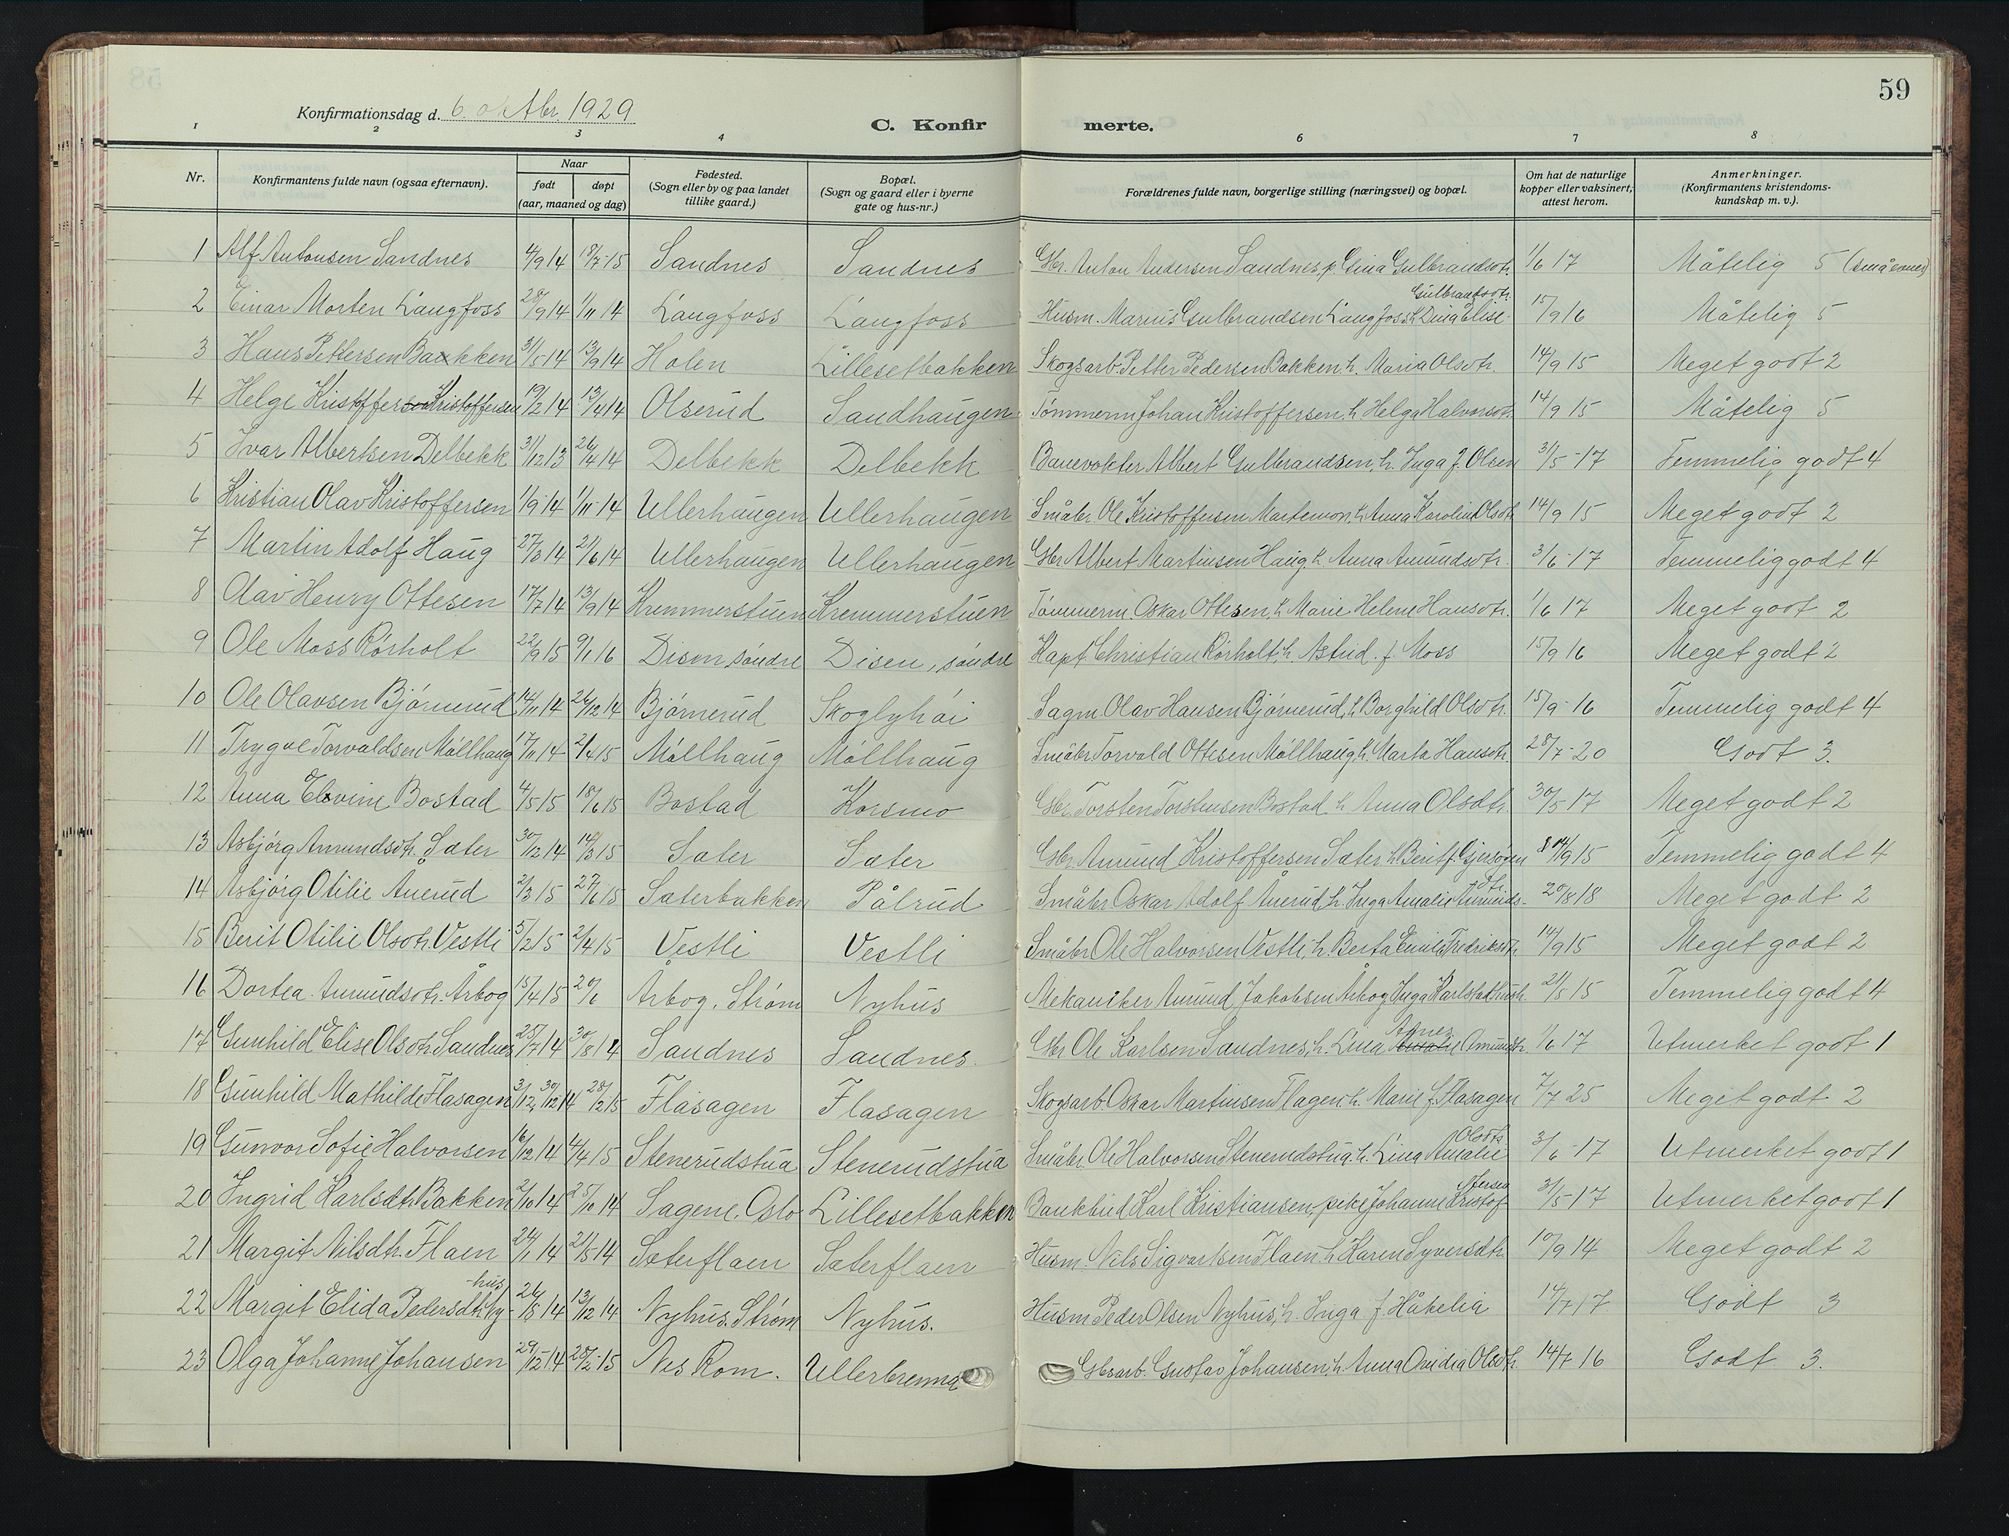 59
Konfirmationsdag d. 6. oktbr. 1929
C. Konfirmerte.
1 2 3 4 6 7 8
Nr. Konfirmantens fulde navn (ogsaa efternavn). Naar født døpt (aar, maaned og dag) Fødested. (Sogn eller by og paa landet tillike gaard.) Bopæl. (Sogn og gaard eller i byerne gate og hus-nr.) Forældrenes fulde navn, borgerlige stilling (næringsvei) og bopæl. Om hat de naturlige kopper eller vaksinert, attest herom. Anmerkninger. (Konfirmantens kristendomskundskap m. v.).
1 Alf Antonsen Sandnes 4/9 14 18/7-15 Sandnes Sandnes Gbr. Anton Andersen Sandnes, p. Gina Gulbrandsdtr. 1/6 17 Måtelig 5 (små evner)
2 Einar Morten Langfoss 28/9 14 1/11 14 Langfoss Langfoss Husm. Marius Gulbrandsen Langfoss, h. Dina Elise Gulbrandsdtr. 15/9 16 Måtelig 5
3 Hans Pettersen Bakken 31/5 14 13/9 14 Holen Lillesetbakken Skogsarb. Petter Pedersen Bakken h. Maria Olsdtr. 14/9 15 Meget godt 2
4 Helge Kristoffer Kristoffersen 19/2 14 13/4 14 Olserud Sandhaugen Tømmerm. Johan Kristoffersen, h. Helga Halvorsdtr. 14/9 15 Måtelig 5
5 Ivar Albertsen Delbekk 31/12 13 26/4 14 Delbekk Delbekk Banevokter Albert Gulbrandsen, h. Inga J. Olsen 31/5-17 Temmelig godt 4
6 Kristian Olav Kristoffersen 1/9-14 1/11-14 Ullerhaugen Ullerhaugen Småbr. Ole Kristoffersen Martemon, h. Anna Karoline Olsdtr. 14/9 15 Meget godt 2
7 Martin Adolf Haug 27/3 14 21/6 14 Ullerhaugen Ullerhaugen Gbr. Albert Martinsen Haug, h. Anna Amundsdtr. 3/6-17 Temmelig godt 4
8 Olav Henry Ottesen 17/7 14 13/9 14 Kremmerstuen Kremmerstuen Tømmerm. Oskar Ottesen, h. Marie Helene Hansdtr. 1/6 17 Meget godt 2
9 Ole Moss Rørholt 22/9 15 9/1 16 Disen, søndre Disen, søndre Kapt. Christian Rørholt, h. Astrid f. Moss 15/9 16 Meget godt 2
10 Ole Olavsen Bjørnerud 14/11 14 26/12 14 Bjørnerud Skoglyhøi Sagm. Olav Hansen Bjørnerud, h. Borghild Olsdtr. 15/9-16 Temmelig godt 4
11 Trygve Torvaldsen Møllhaug 17/11 14 2/4 15 Møllhaug Møllhaug Småbr. Torvald Ottesen Møllhaug, h. Marta Hansdtr. 28/7-20 Godt 3.
12 Anna Elvine Bostad 4/5 15 18/6 15 Bostad Korsmo Gbr. Torsten Torstensen Bostad, h. Anna Olsdtr. 30/5 17 Meget godt 2
13 Asbjørg Amundsdtr. Sæter 30/12 14 14/3 15 Sæter Sæter Gbr. Amund Kristoffersen Sæter h. Berit f. Gjersøyen 14/9 15 Temmelig godt 4
14 Asbjørg Otilie Åuerud 2/3 15 27/6 15 Sæterbakken Pålrud Småbr. Oskar Adolf Åuerud, h. Inga Amalie Amundsdtr. 20/8 18 Meget godt 2
15 Berit Otilie Olsdtr. Vestli 5/2 15 2/4 15 Vestli Vestli Småbr. Ole Halvorsen Vestli, h. Berta Emilie Fredriksdtr. 14/9 15 Meget godt 2
16 Dortea Amundsdtr. Årbog 15/4 15 20/6 Årbog, Strøm Nyhus Mekaniker Amund Jakobsen Årbog, Inga Karlstad hush. 21/5 15 Temmelig godt 4
17 Gunhild Elise Olsdtr. Sandnes 25/7 14 30/8 14 Sandnes Sandnes. Gbr. Ole Karlsen Sandnes, h. Lina Agnes Amundsdtr. 1/6 17 Utmerket godt 1
18 Gunhild Mathilde Flasagen 3/12, 30/12 14 28/2 15 Flasagen Flasagen Skogsarb. Oskar Martinsen Flagen, h. Marie f. Flasagen 7/7 25 Meget godt 2
19 Gunvor Sofie Halvorsen 16/12 14 4/4 15 Stenerudstua Stenerudstua Småbr. Ole Halvorsen Stenerudstua, h. Lina Amalie Olsdtr. 3/6-17 Utmerket godt 1
20 Ingrid Karlsdtr. Bakken 2/10 14 25/10 14 Sagene, Oslo Lillesetbakken Bankbud Karl Kristiansen, pike Johanne Kristoffersen 31/5-17 Utmerket godt 1
21 Margit Nilsdtr. Flaen 24/1 14 21/5 14 Sæterflaen Sæterflaen Husm. Nils Sigvartsen Flaen, h. Karen Syversdtr. 10/9 14 Meget godt 2
22 Margit Elida Pedersdtr. Nyhus 26/5 14 13/12 14 Nyhus, Strøm Nyhus. Husm. Peder Olsen Nyhus, h. Inga f. Håkelia 14/7 17 Godt 3
23 Olga Johanne Johansen 29/12-14 28/2-15 Nes Rom. Ullerbrenna Gbsarb. Gustav Johansen, h. Anna Ovidia Olsdtr. 14/7 16 Godt 3.